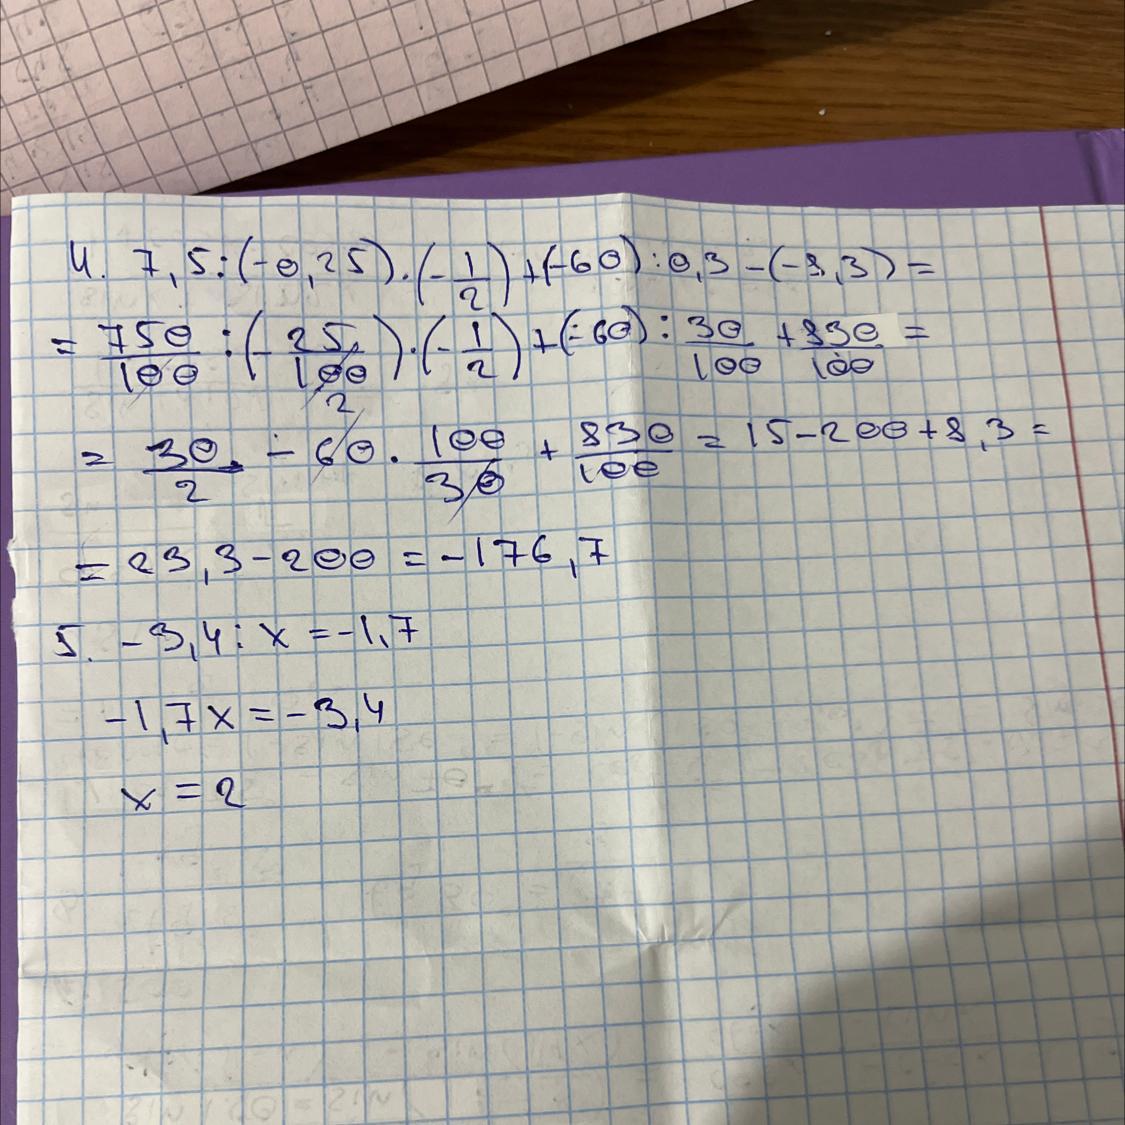 4. 7,5:(-0,25)·(-1/2)+(-60):0,3-(-8,3)=
= 750/100:(-25/100)·(-1/2)+(-60):30/100+830/100=
= 30/2 - 60·100/30 + 830/100 = 15-200+8,3=
= 23,3-200 = -176,7
5. -3,4:x=-1,7
-1,7x=-3,4
x=2